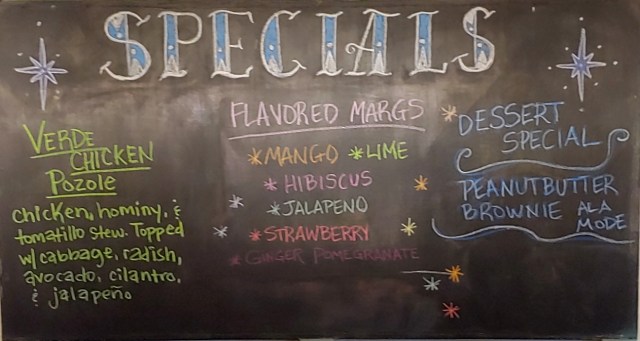 SPECIALS
VERDE
CHICKEN
Pozole
chicken, hominy, &
tomatillo stew. Topped
w/ cabbage, radish,
avocado, cilantro,
& jalapeño
FLAVORED MARGS
*MANGO *LIME
*HIBISCUS
*JALAPENO
*STRAWBERRY
*GINGER POMEGRANATE
DESSERT
SPECIAL
PEANUTBUTTER
BROWNIE ALA
MODE